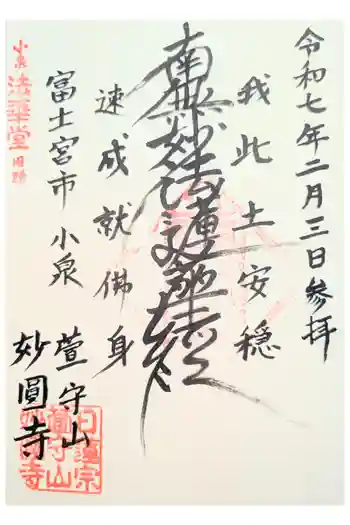 令和七年二月三日参拝
我此土安穏
南無妙法蓮華経
速成就佛身
富士宮市 小泉
萱守山
妙圓寺
小泉 法華堂 旧跡
日蓮宗
萱守山
妙圓寺